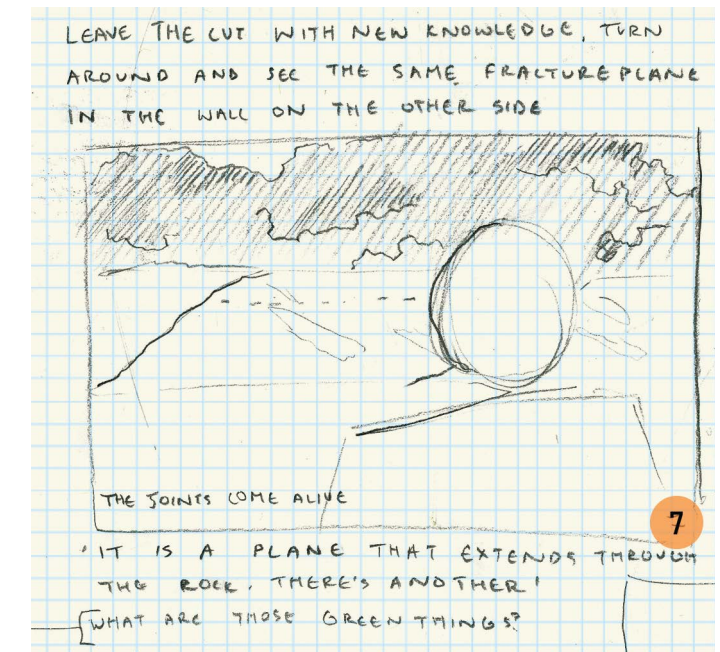 LEAVE THE CUT WITH NEW KNOWLEDGE, TURN
AROUND AND SEE THE SAME FRACTURE PLANE
IN THE WALL ON THE OTHER SIDE
THE JOINTS COME ALIVE
7
'IT IS A PLANE THAT EXTENDS THROUGH
THE ROCK. THERE'S ANOTHER'
[WHAT ARE THOSE GREEN THINGS?